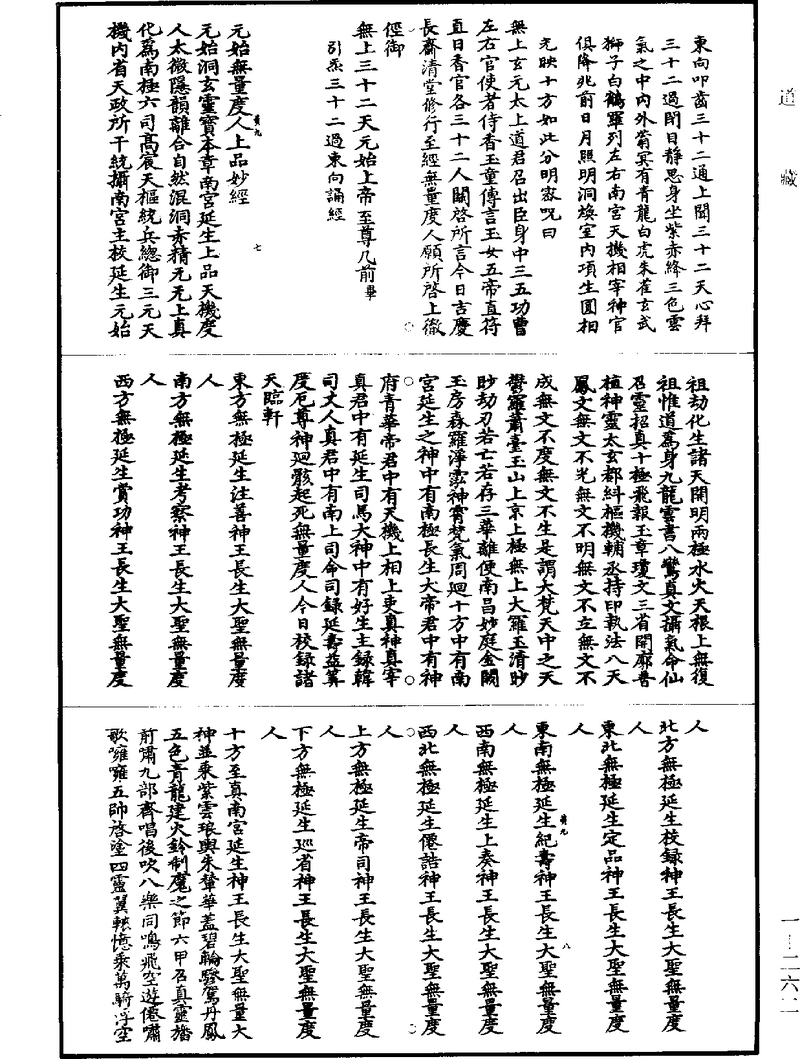 道藏
東向叩齒三十二通上聞三十二天心拜
三十二過閉目靜思身坐紫赤絳三色雲
氣之中內外蓊冥有青龍白虎朱雀玄武
獅子白鶴羅列左右南宮天機相宰神官
俱降兆前日月照明洞煥室內項生圓相
光映十方如此分明密呪曰
無上玄元太上道君召出臣身中三五功曹
左右官使者侍香玉童傳言玉女五帝直符
直日香官各三十二人關啓所言今日吉慶
長齋清堂修行至經無量度人願所啓上徹
徑御
無上三十二天元始上帝至尊几前畢
引炁三十二過東向誦經
元始無量度人上品妙經
黄九 七
元始洞玄靈寶本章南宮延生上品天機度
人太微隱韻離合自然混洞赤精元无上真
化爲南極六司高宸天樞統兵總御三元天
機內省天政所干統攝南宮主校延生元始
祖劫化生諸天開明兩極水火天根上無復
祖惟道爲身九龍雲書八鸞真文攝氣命仙
召靈招真十極飛報玉章瓊文三省開廓普
植神靈太玄都糾樞機輔丞持印執法八天
鳳文無文不光無文不明無文不立無文不
成無文不度無文不生是謂大梵天中之天
鬱羅蕭臺玉山上京上極無上大羅玉清眇
眇劫刃若亡若存三華離便南昌妙庭金闕
玉房森羅淨泓神霄梵氣周迴十方中有南
宮延生之神中有南極長生大帝君中有神
府青華帝君中有天機上相上吏真神真宰
真君中有延生司馬大神中有好生主録韓
司丈人真君中有南上司命司録延壽益算
度厄尊神迴骸起死無量度人今日校録諸
天臨軒
東方無極延生注善神王長生大聖無量度
人
南方無極延生考察神王長生大聖無量度
人
西方無極延生賞功神王長生大聖無量度
人
北方無極延生校録神王長生大聖無量度
人
東北無極延生定品神王長生大聖無量度
人
東南無極延生紀壽神王長生大聖無量度
黄九 八
人
西南無極延生上奏神王長生大聖無量度
人
西北無極延生僊誥神王長生大聖無量度
人
上方無極延生帝司神王長生大聖無量度
人
下方無極延生巡省神王長生大聖無量度
人
十方至真南宮延生神王長生大聖無量大
神並乘紫雲琅輿朱輦華蓋碧輪驂駕丹鳳
五色青龍建火鈴制魔之節六甲召真靈旛
前嘯九部齊唱後吹八樂同鳴飛空遊僊嘯
歌嗈嗈五帥啓塗四靈翼轅億乘萬騎浮空
一-二六二